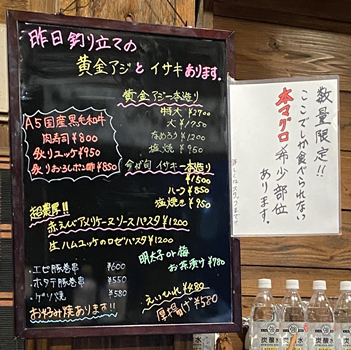 昨日釣り立ての
黄金アジとイサキあります。
黄金アジ一本造り
特大 ¥2700
大 ¥1250
なめろう ¥1200
塩焼 ¥960
A5国産黒毛和牛
肉寿司 ¥800
炙りユッケ ¥950
炙りおろしポン酢 ¥850
今が旬 イサキ一本造り
¥1500
ハーフ ¥850
塩焼き ¥950
超濃厚!!
赤えびアメリケーヌソースパスタ ¥1200
生ハムユッケのロゼパスタ ¥1200
明太子or梅
お茶漬け ¥780
・エビ豚巻串 ¥600
・ホタテ豚巻串 ¥550
・ゲソ焼 ¥580
お好み焼あります!!
えいひれ ¥480
厚揚げ ¥580
数量限定!!
ここでしか食べられない
本マグロ希少部位
あります。
炭酸水
炭酸水